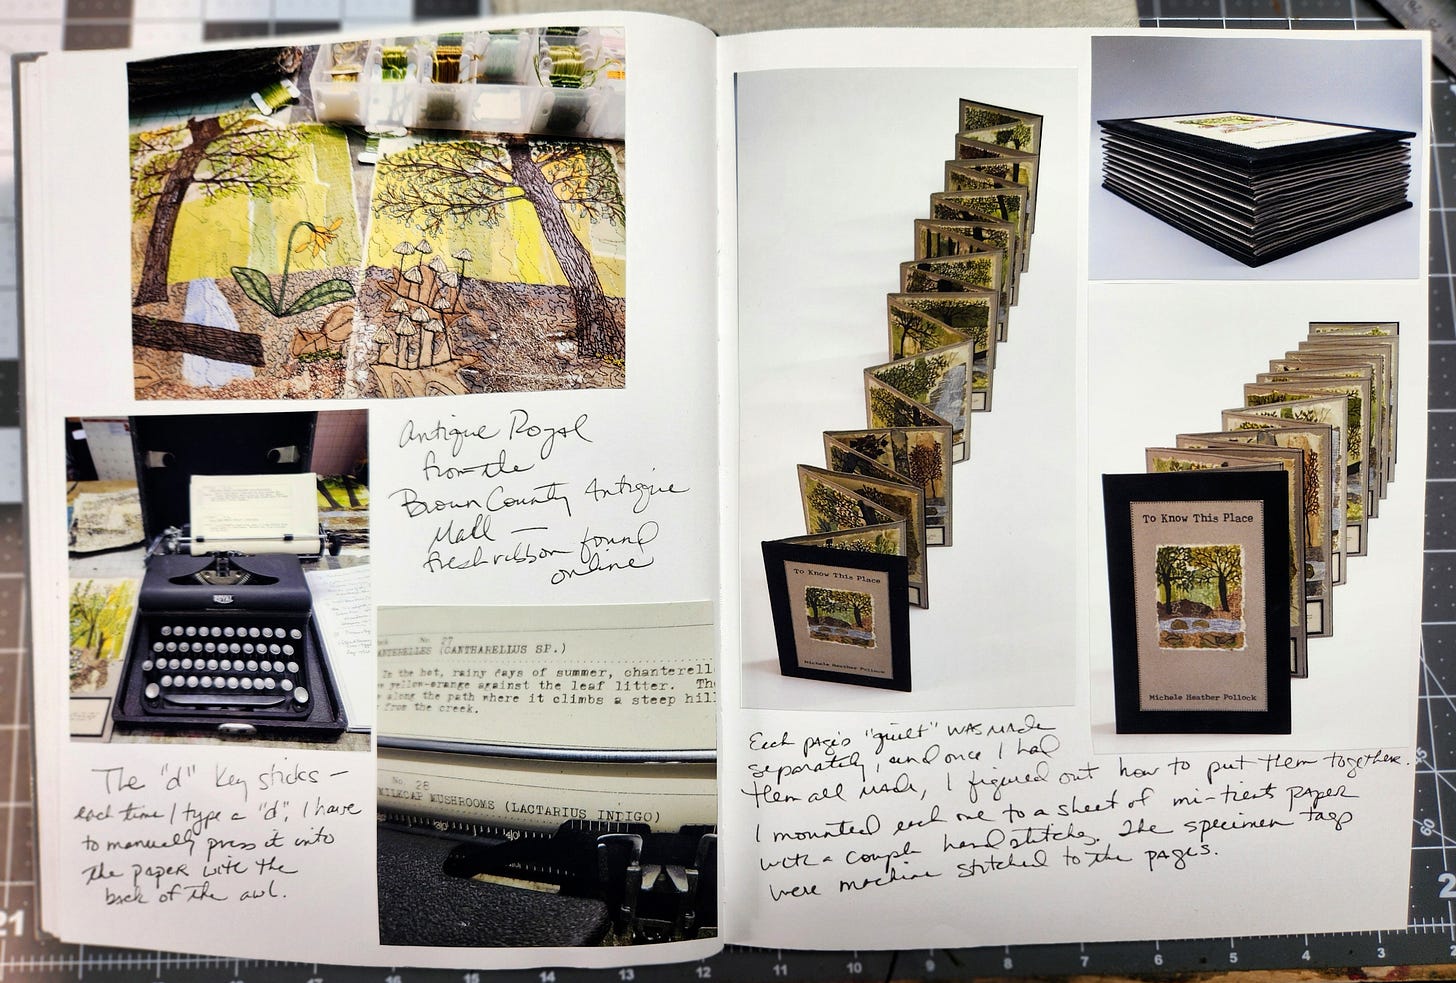 Antique Royal
from the
Brown County Antique
Mall —
fresh ribbon found
online
ROYAL
The "d" key sticks —
each time I type a "d", I have
to manually press it into
the paper with the
back of the awl.
No. 27
ANTERELLES (CANTHARELLUS SP.)
In the hot, rainy days of summer, chanterell
yellow-orange against the leaf litter. Th
along the path where it climbs a steep hill
from the creek.
No. 28
MILKCAP MUSHROOMS (LACTARIUS INDIGO)
To Know This Place
Michele Heather Pollock
To Know This Place
Michele Heather Pollock
Each page's "quilt" was made
separately, and once I had
them all made, I figured out how to put them together.
I mounted each one to a sheet of mi-tients paper
with a couple hand stitches. The specimen tags
were machine stitched to the pages.
21
17
16
15
14
13
12
11
10
9
8
7
6
5
4
3
2
60